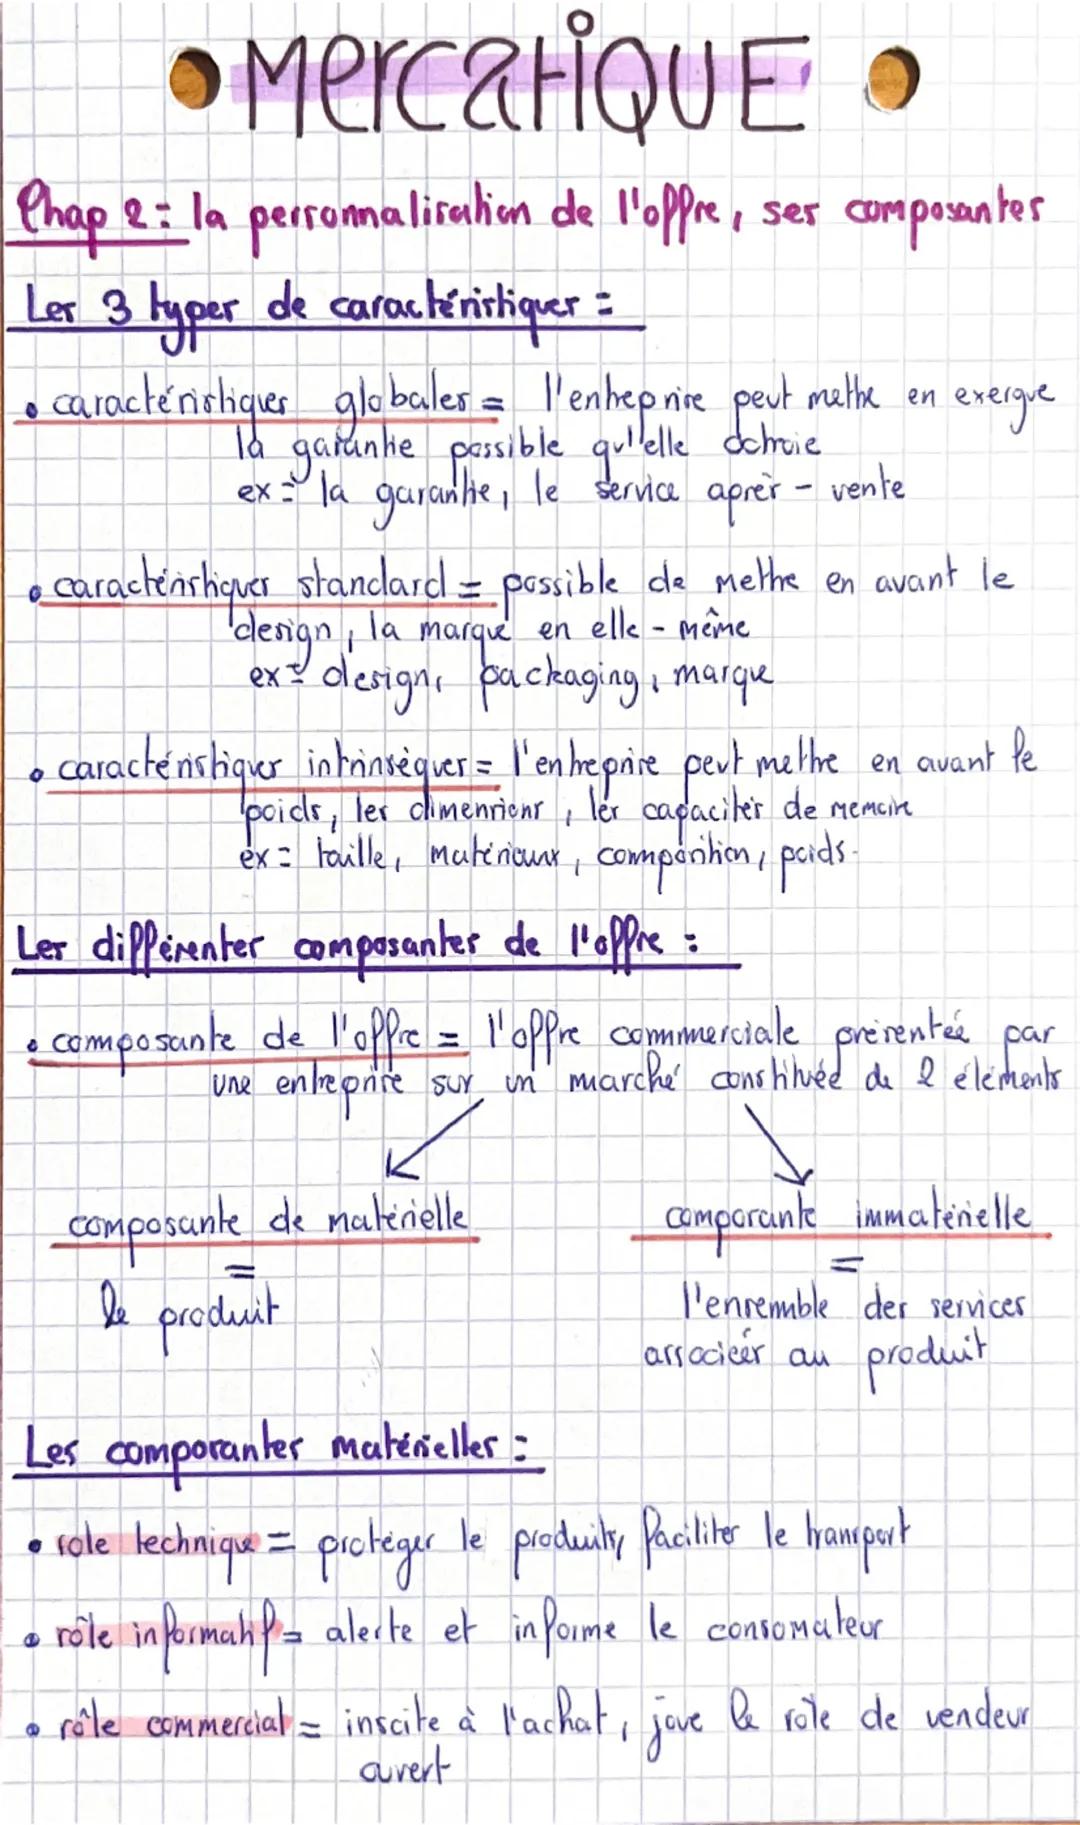 MercatiQUE
Chap 2 : la personnalisation de l'offre, ses composantes
Les 3 types de caractéristiques :
• caractéristiques globales = l'entreprise peut mettre en exergue
la garantie possible qu'elle octroie
ex = la garantie, le service après-vente
• caractéristiques standard = possible de mettre en avant le
design, la marque en elle-même
ex = design, packaging, marque
• caractéristiques intrinsèques = l'entreprise peut mettre en avant le
poids, les dimensions, les capacités de memoire
ex = taille, matériaux, composition, poids.
Les différentes composantes de l'offre :
• composante de l'offre = l'offre commmerciale présentée par
une entreprise sur un marché constituée de 2 éléments
composante de matérielle
composante immatérielle
=
=
le produit
l'ensemble des services
associéés au produit
Les composantes matérielles :
• role technique = protéger le produits, faciliter le transport
• rôle informatif = alerte et informe le consomateur
• rôle commercial = inscite à l'achat, joue le rôle de vendeur
avert